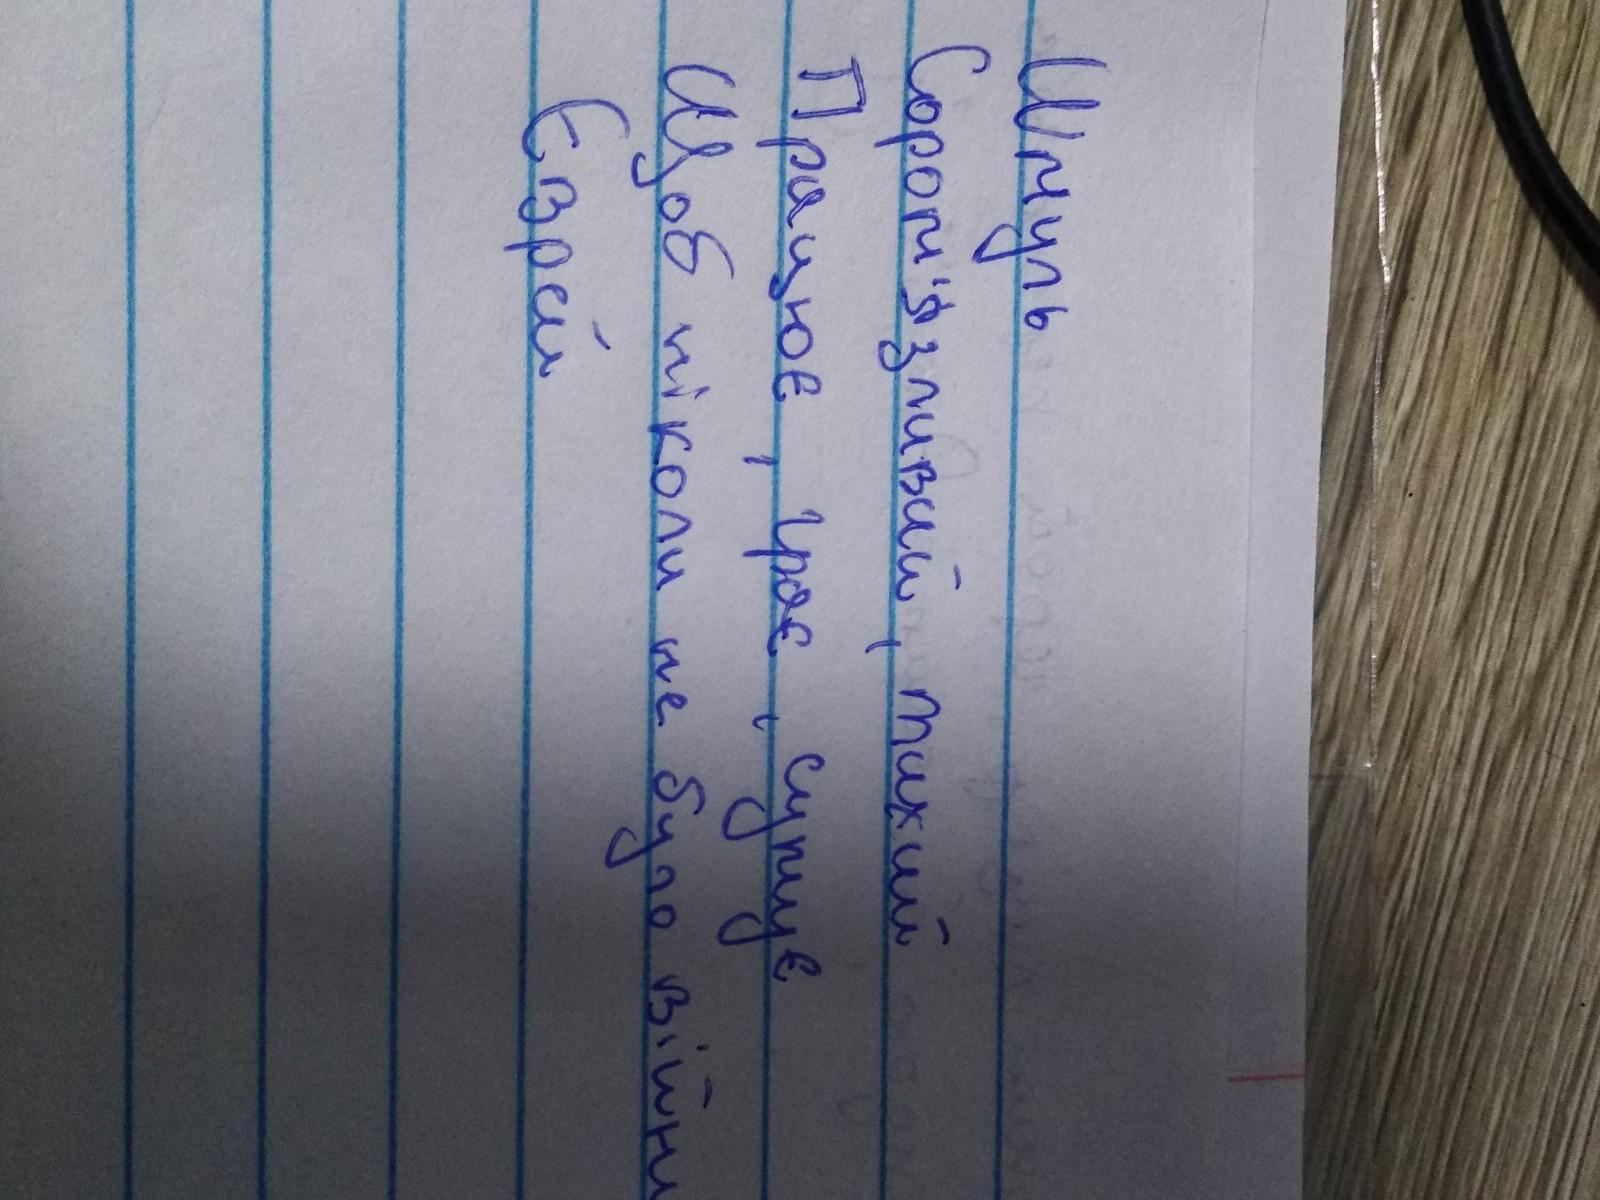 Шмуль
Сором'язливий, тихий
Працює, грає, сумує
Щоб ніколи не було війни
Єврей